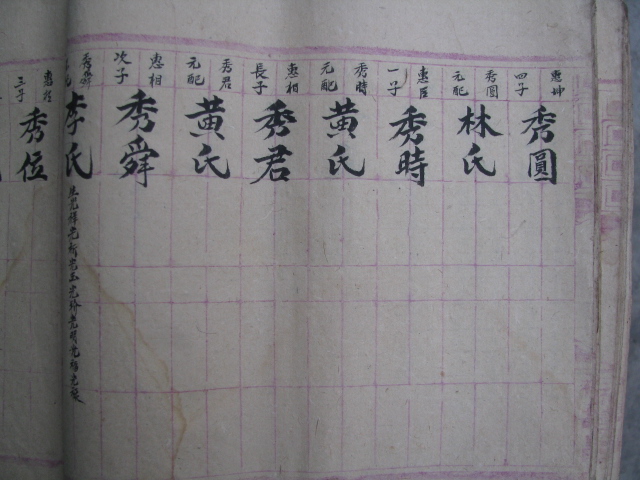 惠坤
四子
秀圓
秀圓
元配
林氏
惠臣
一子
秀時
秀時
元配
黄氏
惠相
長子
秀君
秀君
元配
黄氏
惠相
次子
秀舜
秀舜
李氏
三子
秀位